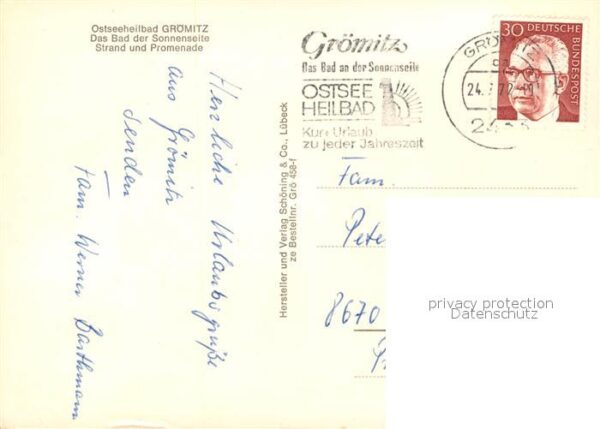 Ostseeheilbad GRÖMITZ
Das Bad der Sonnenseite
Strand und Promenade
Herzliche Urlaubsgrüße
aus Grömitz
senden
Fam. Werner Barthmann
Hersteller und Verlag Schöning & Co., Lübeck
ze Bestellnr. Grö 458-f
Grömitz
Das Bad an der Sonnenseite
OSTSEE
HEILBAD
Kur + Urlaub
zu jeder Jahreszeit
30 DEUTSCHE
BUNDESPOST
Fam.
Pete
8670
privacy protection
Datenschutz